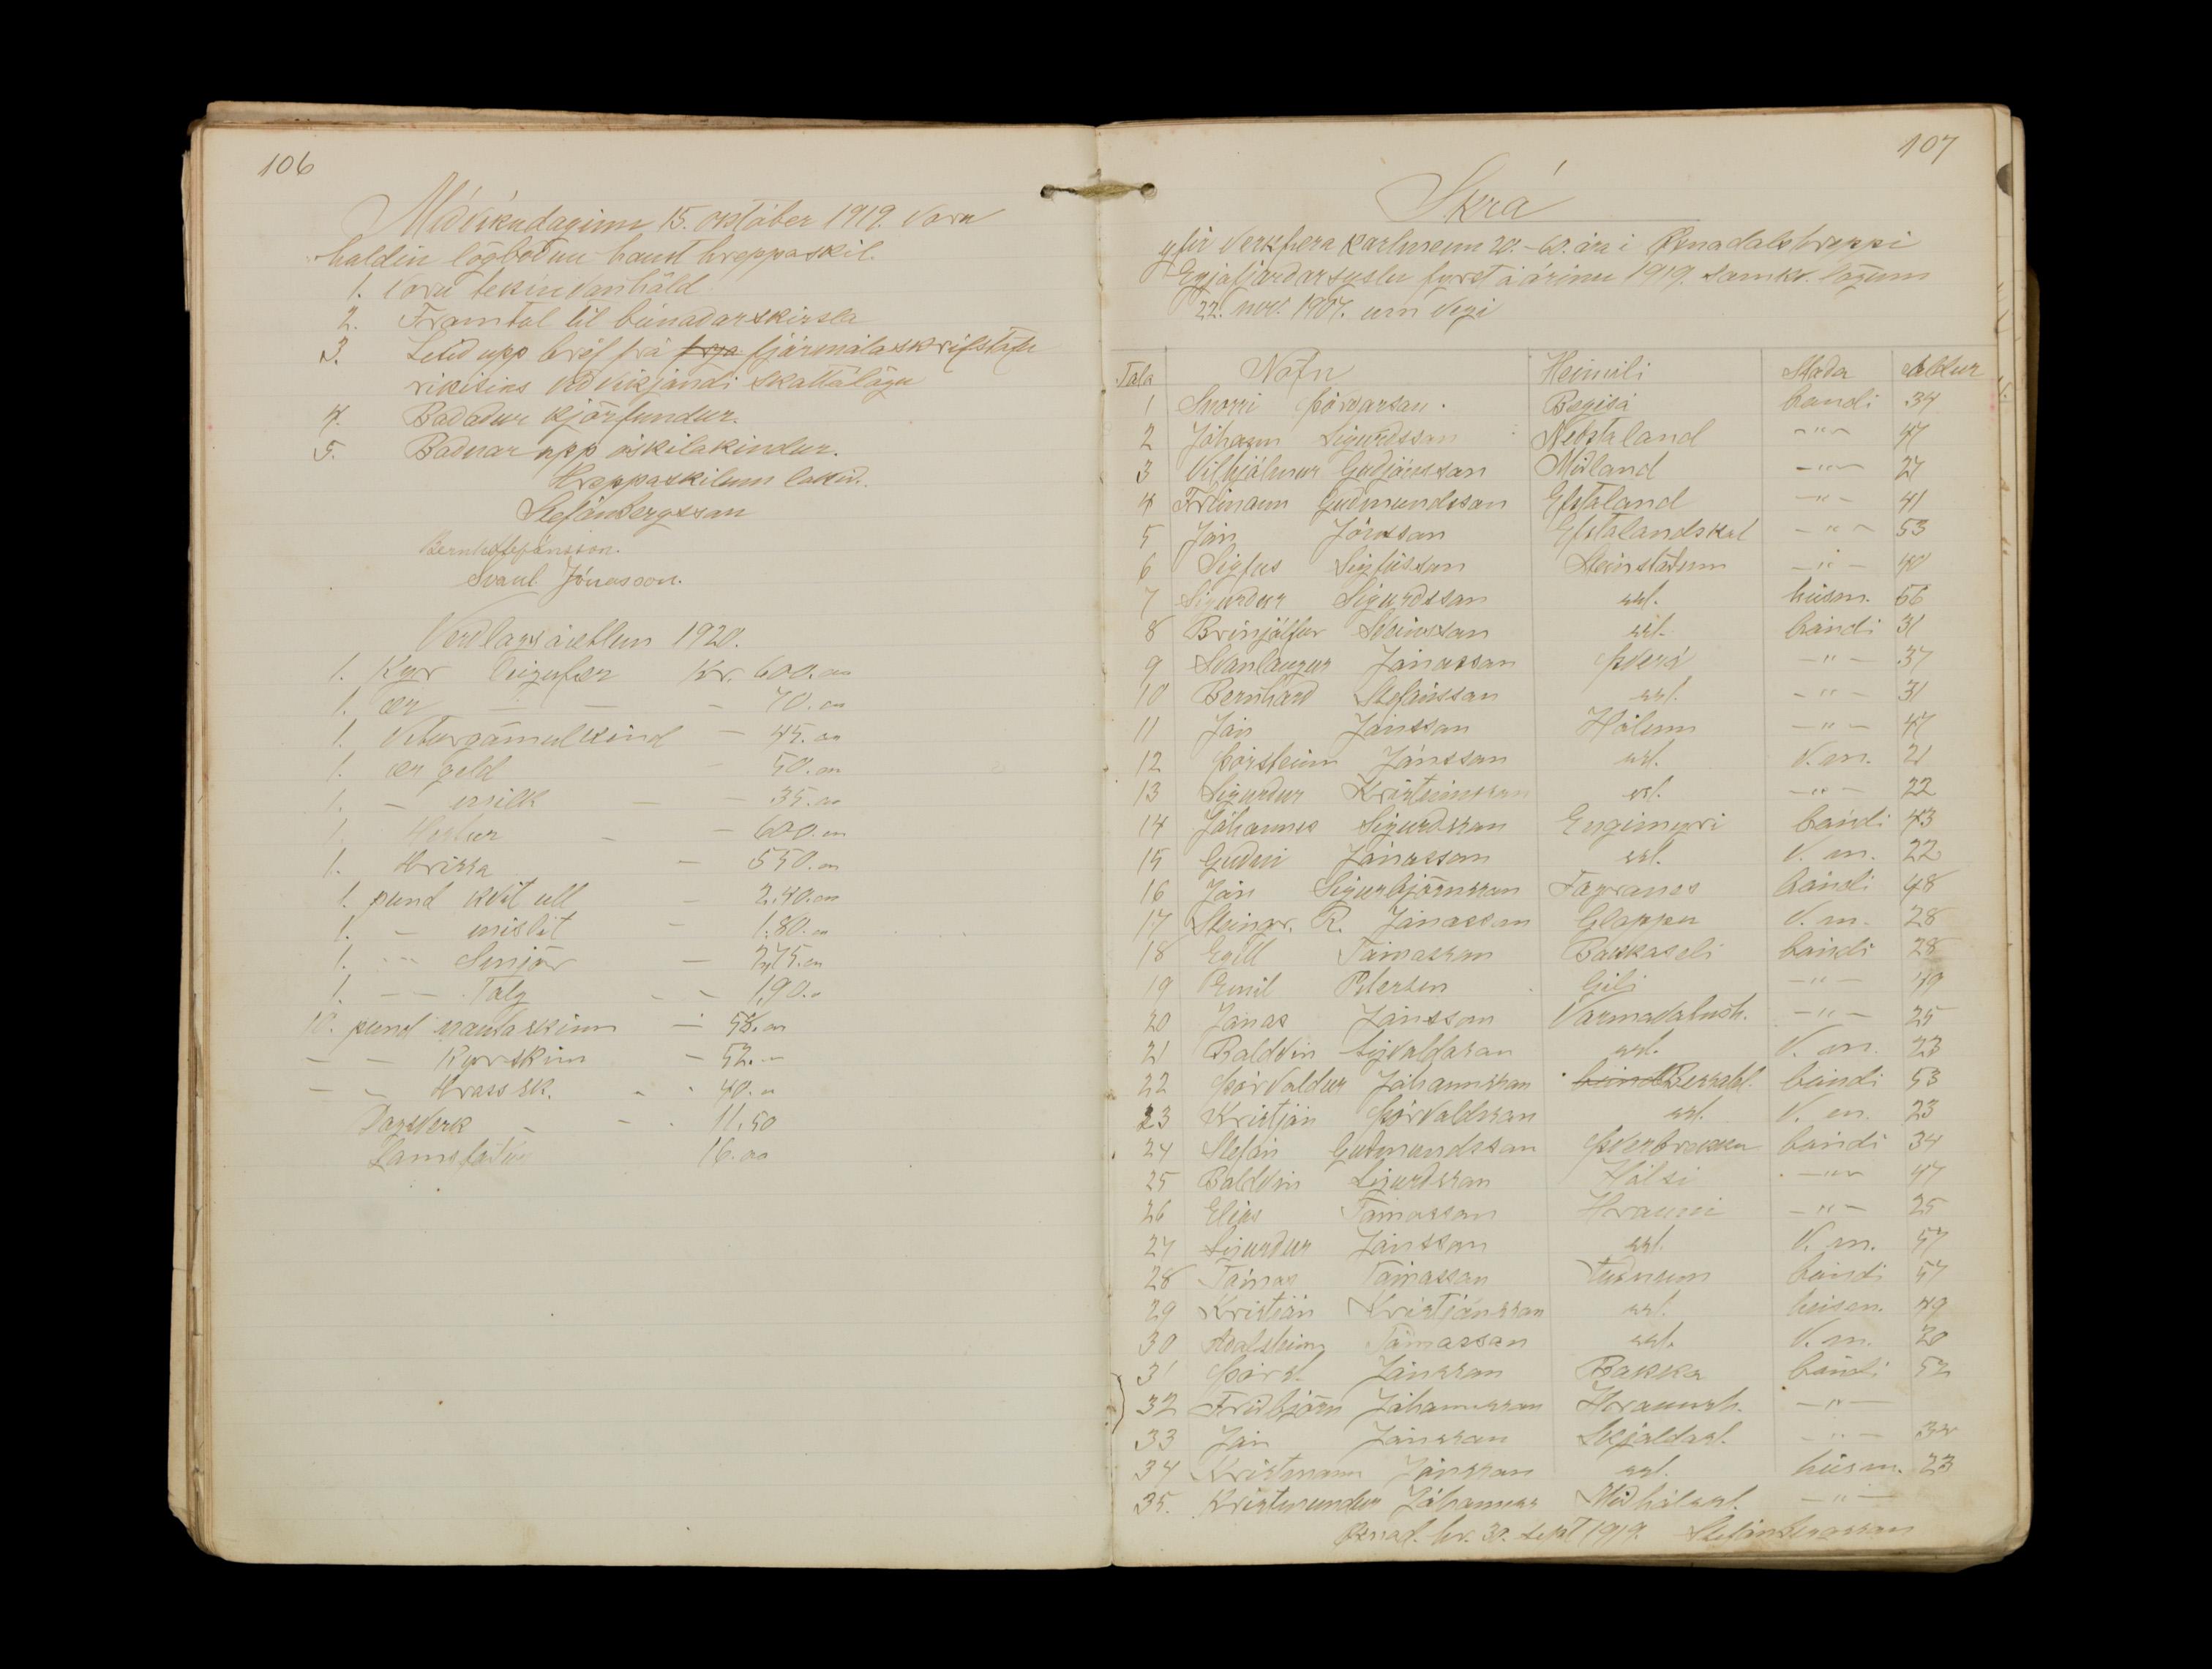 106
Miðvikudaginn 15. október 1919. voru
haldin lögboðnu haust hreppaskil.
1. voru tekin vanhöld
2. Framtal til búnaðarskírsla
3. Lesið upp bréf frá fjármálaskrifstofu
ríkisins viðvíkjandi skattalögu
4. Boðaður kjörfundur.
5. Boðnar upp óskilakindur.
Hreppaskilum lokið.
Stefán Bergsson
Bernh. Stefánsson.
Svanl. Jónasson.
Verðlagsáætlun 1920.
1. Kyr leigufær Kr. 600.00
1. ær — — - 70.00
1. Veturgömulkind — 45.00
1. ær geld - 50.00
1. — milk — — 35.00
1. Hestur - — 600.00
1. Hrissa — 550.00
1. pund hvít ull — 2.40.00
1. — mislit - 1.80.00
1. -- Smjör — 2,75.00
1. —— Tólg - - 1,90.00
10. pund nautaskinn — 58.00
— — Kyrskinn — 52.00
— - Hrosssk. - - 40.00
Dagsverk - - 11.50
Lamsfóður 16.00
107
Skrá
yfir verkfæra karlmenn 20.-60. ára í Öxnadalshreppi
Eyjafjarðarsyslu fyrst á árinu 1919. samkv. lögum
22. nov. 1907. um vegi
Tala Nöfn Heimili Staða Aldur
1 Snorri Þórðarson. Bægisá bóndi 34
2 Jóhann Sigurðsson Neðstaland -"- 47
3 Vilhjálmur Guðjónsson Miðland -"- 27
4 Frímann Guðmundsson Efstaland -"- 41
5 Jón Jónsson Efstalandskot -"- 53
6 Sigfús Sigfússon Steinstöðum -"- 40
7 Sigurður Sigurðsson ssl. húsm. 56
8 Brinjólfur Steinsson ssl. bóndi 31
9 Svanlaugur Jónasson Þverá -"- 37
10 Bernharð Stefánsson ssl. -"- 31
11 Jón Jónsson Hólum -"- 47
12 Þorsteinn Jónsson ssl. V.m. 21
13 Sigurður Kristinsson ssl. -"- 22
14 Jóhannes Sigurðsson Engimyri bóndi 43
15 Guðni Jónasson ssl. V.m. 22
16 Jón Sigurbjörnsson Fagranes bóndi 48
17 Steingr. R. Jónasson Gloppu V.m. 28
18 Egill Tómasson Bakkaseli bóndi 28
19 Emil Petersen Gili -"- 49
20 Jónas Jónsson Varmavatnsh. -"- 25
21 Baldvin Sigvaldason ssl. V.m. 23
22 Þorvaldur Jóhannsson bóndi Bessahl. bóndi 53
23 Kristján Þorvaldsson ssl. V.m. 23
24 Stefán Guðmundsson Þverbrekku bóndi 34
25 Baldvin Sigurðsson Hálsi -"- 47
26 Elías Tómasson Hrauni -"- 25
27 Sigurður Jónsson ssl. V.m. 57
28 Tómas Tómasson Auðnum bóndi 57
29 Kristján Kristjánsson ssl. húsm. 49
30 Aðalsteinn Tómasson ssl. V.m. 20
31 Þorst. Jónsson Bakka bóndi 52
32 Friðbjörn Jóhannsson Hraunsh. -"-
33 Jón Jónsson Skjaldast. -"- 34
34 Kristmann Jónsson ssl. húsm. 23
35. Kristmundur Jóhannss Miðhálsst. -"-
Öxnad. hr. 30. sept 1919. Stefán Bergsson